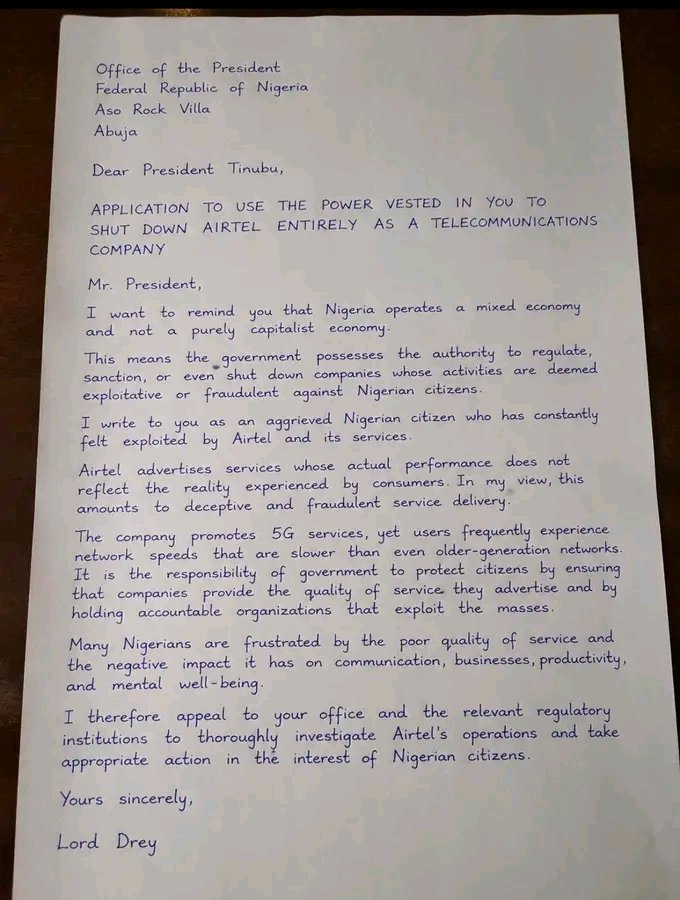 Office of the President
Federal Republic of Nigeria
Aso Rock Villa
Abuja
Dear President Tinubu,
APPLICATION TO USE THE POWER VESTED IN YOU TO
SHUT DOWN AIRTEL ENTIRELY AS A TELECOMMUNICATIONS
COMPANY
Mr. President,
I want to remind you that Nigeria operates a mixed economy
and not a purely capitalist economy.
This means the government possesses the authority to regulate,
sanction, or even shut down companies whose activities are deemed
exploitative or fraudulent against Nigerian citizens.
I write to you as an aggrieved Nigerian citizen who has constantly
felt exploited by Airtel and its services.
Airtel advertises services whose actual performance does not
reflect the reality experienced by consumers. In my view, this
amounts to deceptive and fraudulent service delivery.
The company promotes 5G services, yet users frequently experience
network speeds that are slower than even older-generation networks.
It is the responsibility of government to protect citizens by ensuring
that companies provide the quality of service they advertise and by
holding accountable organizations that exploit the masses.
Many Nigerians are frustrated by the poor quality of service and
the negative impact it has on communication, businesses, productivity,
and mental well-being.
I therefore appeal to your office and the relevant regulatory
institutions to thoroughly investigate Airtel's operations and take
appropriate action in the interest of Nigerian citizens.
Yours sincerely,
Lord Drey